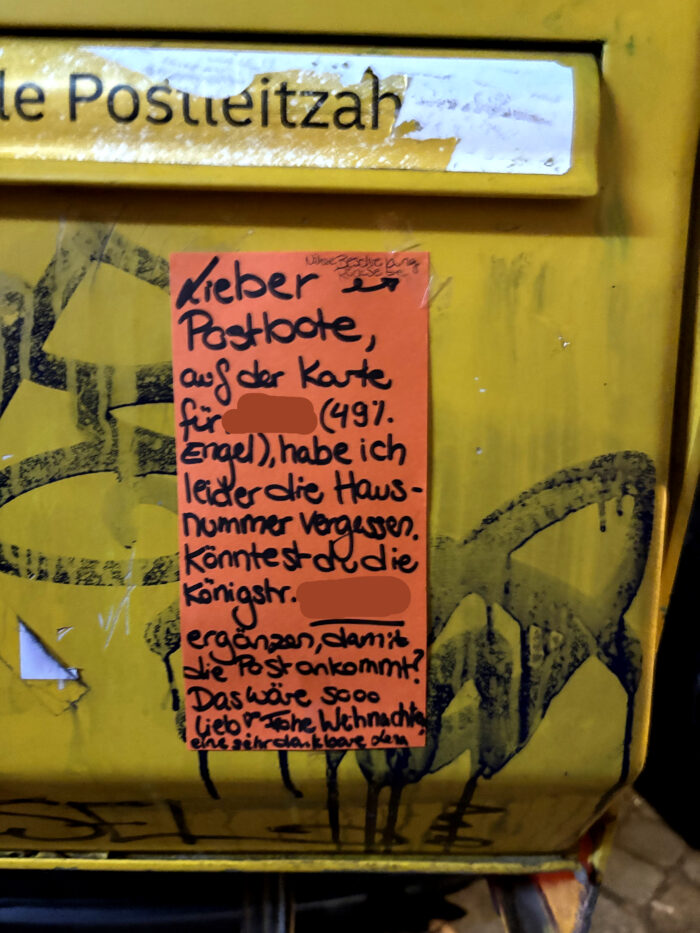 le Postleitzah
Nähere Beschreibung
Lieber
Postbote,
auf der Karte
für (49%
Engel), habe ich
leider die Haus-
nummer vergessen.
Könntest du die
Königstr.
ergänzen, damit
die Post ankommt?
Das wäre sooo
lieb ♥ Frohe Weihnachten
eine sehr dankbare